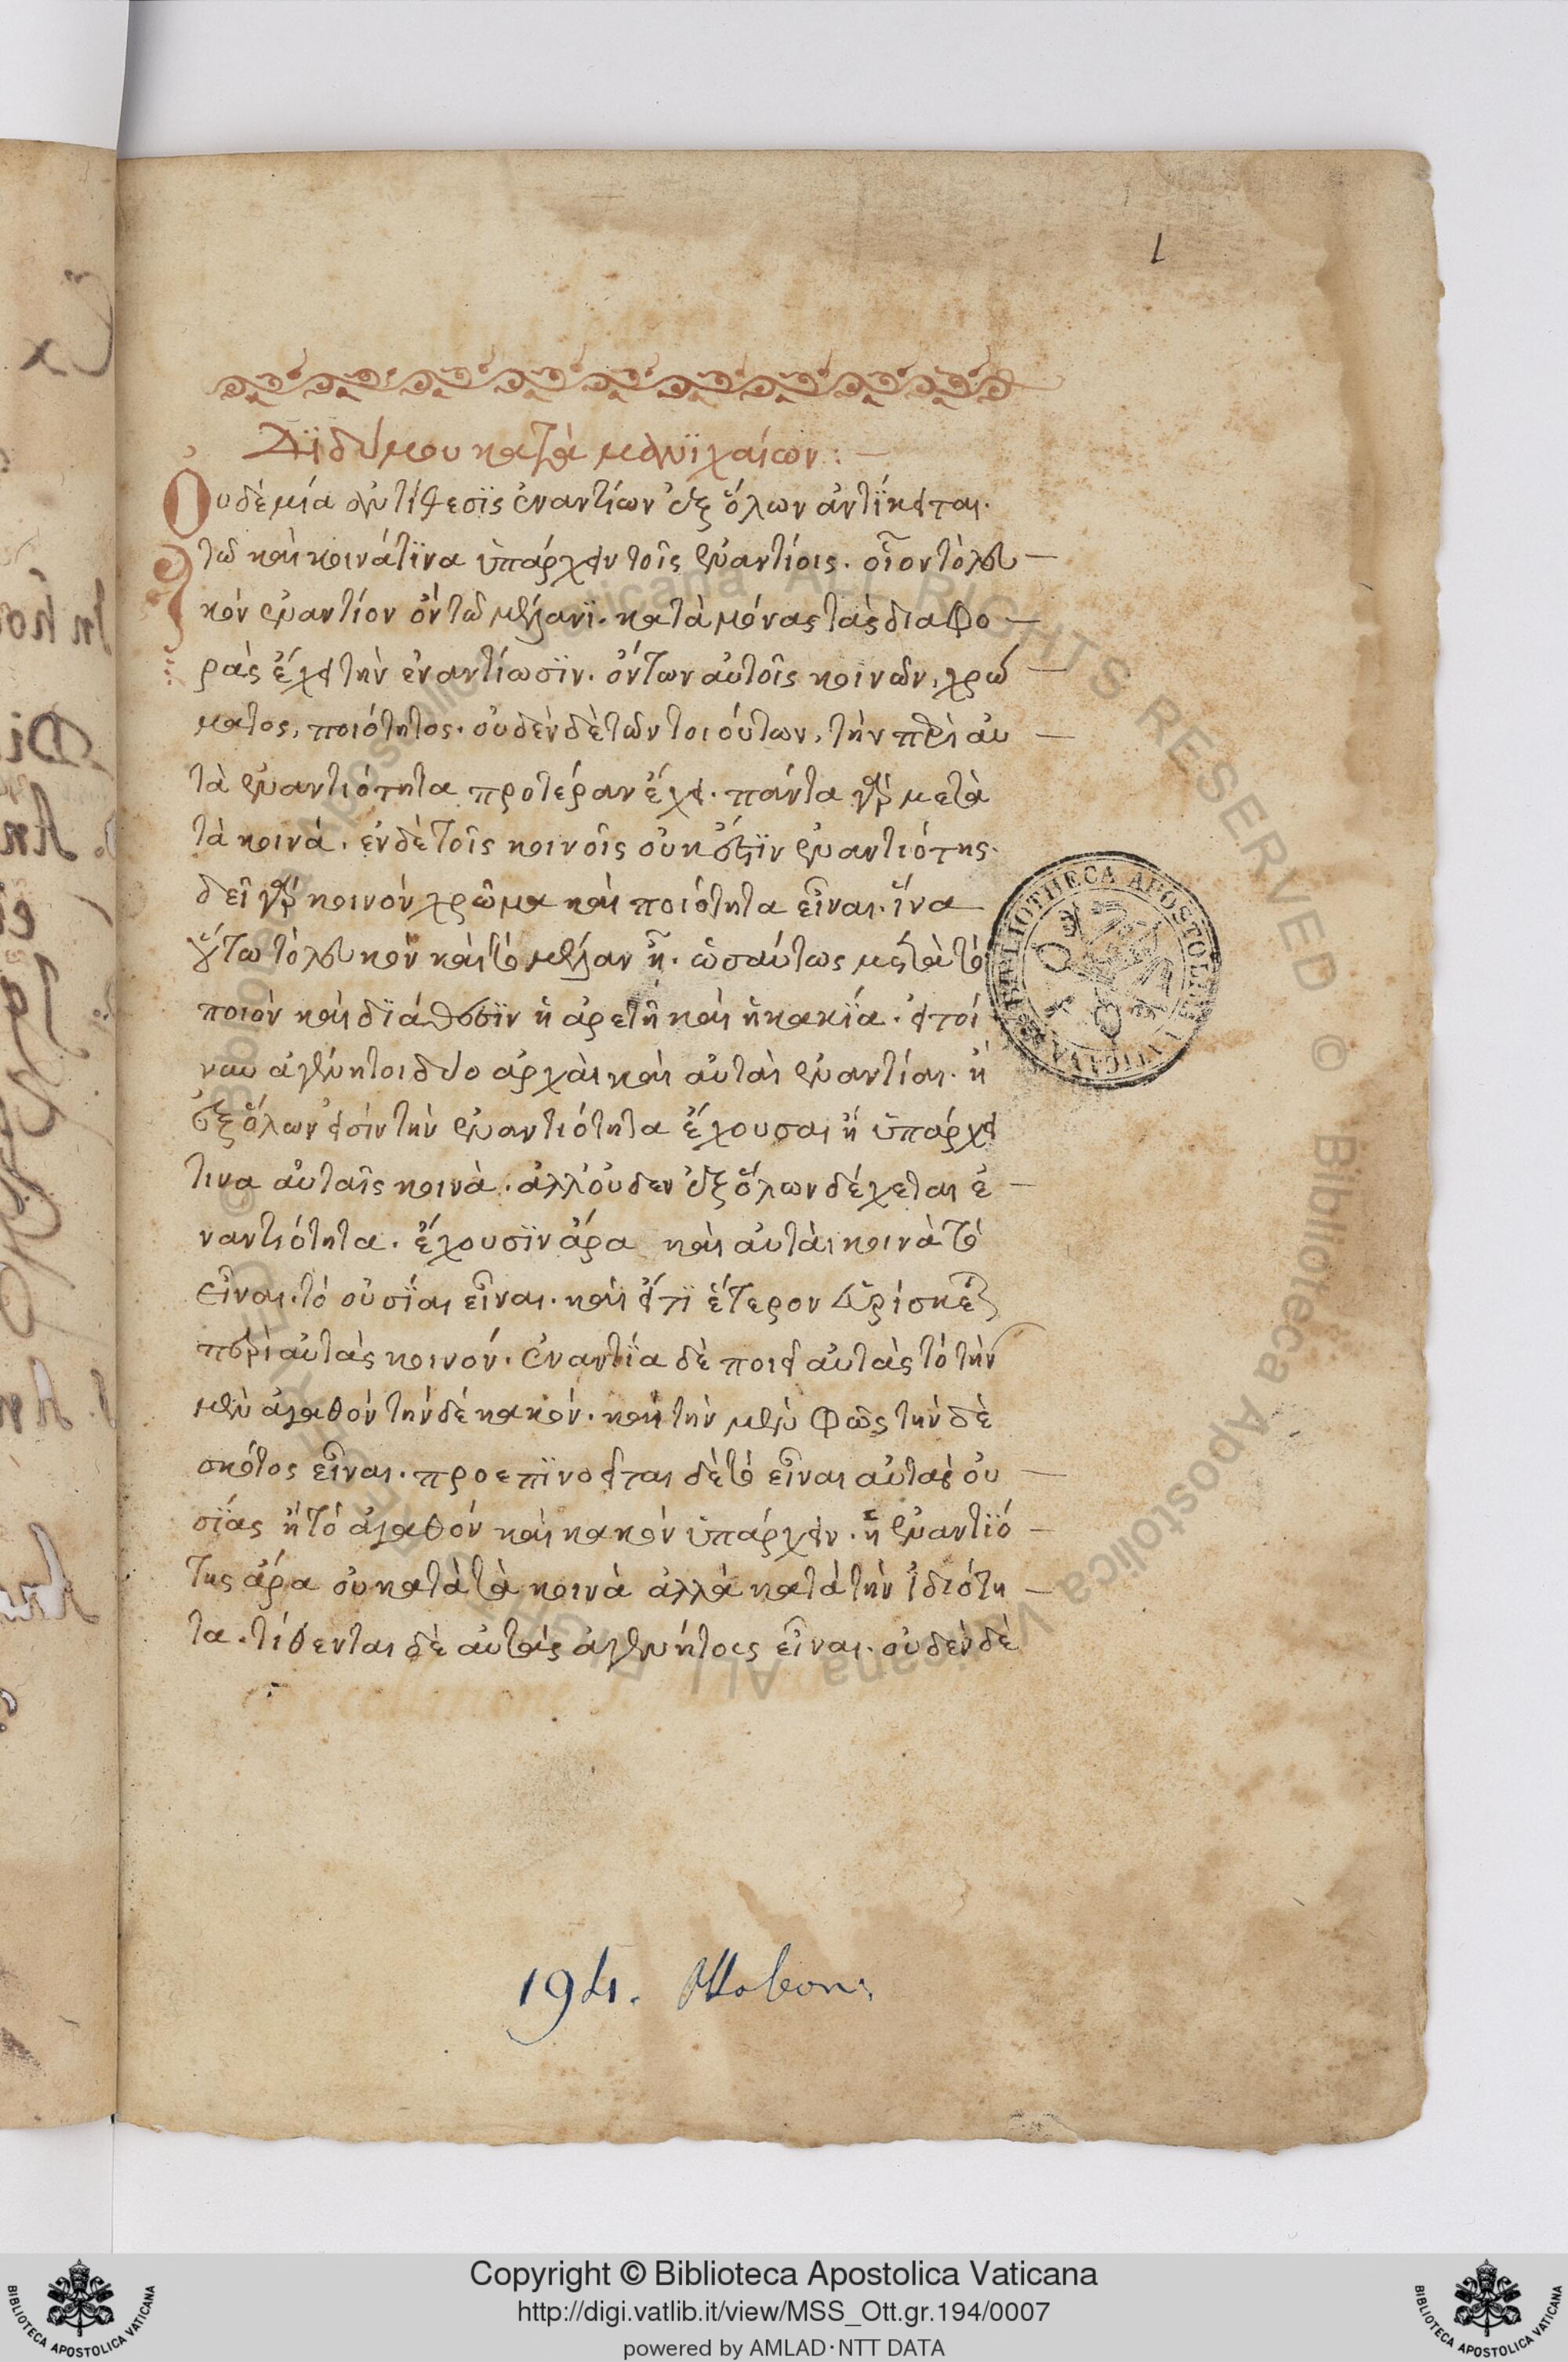 1
Διδύμου κατὰ μανιχαίων:
Ουδὲ μία ἀντίθεσις ἐναντίων ἐξ ὅλων ἀντίκειται.
τῶ καὶ κοινάτινα ὑπάρχειν τοῖς ἐναντίοις. οἷον τὸ λευ
κὸν ἐναντίον ὂν τῶ μέλανι. κατὰ μόνας τὰς διαφο
ρὰς ἔχει τὴν ἐναντίωσιν. ὄντων αὐτοῖς κοινῶν, χρώ
ματος, ποιότητος. οὐδὲν δὲ τῶν τοιούτων, τὴν περὶ αυ
τὰ ἐναντιότητα προτέραν ἔχει. πάντα γὰρ μετὰ
τὰ κοινά. ἐν δὲ τοῖς κοινοῖς οὐκ ἔστιν ἐναντιότης.
δεῖ γὰρ κοινὸν χρῶμα καὶ ποιότητα εἶναι. ἵνα
οὕτω τὸ λευκὸν καὶ τὸ μέλαν ῆ. ὡσαύτως μετὰ τὸ
ποιὸν καὶ διάθεσιν ἡ ἀρετὴ καὶ ἡ κακία. εἰ τοί
νυν ἀγένητοι δύο ἀρχαὶ καὶ αὐταὶ ἐναντίαι. ἢ
ἐξ ὅλων εἰσὶν τὴν ἐναντιότητα ἔχουσαι ἢ ὑπάρχει
τινα αὐταῖς κοινὰ. ἀλλ' οὐδεν ἐξ ὅλων δέχεται ἐ
ναντιότητα. ἔχουσιν ἄρα καὶ αὐταὶ κοινὰ τὸ
εἶναι. τὸ οὐσίαι εἶναι. καὶ εἴ τι ἕτερον εὑρίσκεται
περὶ αὐτὰς κοινόν. ἐναντία δὲ ποιεῖ αὐτὰς τὸ τὴν
μὲν ἀγαθὸν τὴν δὲ κακόν. καὶ τὴν μὲν φῶς τὴν δὲ
σκότος εἶναι. προεπινοεῖται δὲ τὸ εἶναι αὐτὰς οὐ
σίας ἢ τὸ ἀγαθὸν καὶ κακὸν ὑπάρχειν. ἡ ἐναντιό
της ἄρα οὐ κατὰ τὰ κοινὰ ἀλλὰ κατὰ τὴν ἰδιότη
τα. τίθενται δὲ αὐτὰς ἀγενήτους εἶναι. οὐδὲν δὲ
BIBLIOTHECA APOSTOLICA VATICANA
194. Ottobon.
Copyright © Biblioteca Apostolica Vaticana
http://digi.vatlib.it/view/MSS_Ott.gr.194/0007
powered by AMLAD·NTT DATA
BIBLIOTECA APOSTOLICA VATICANA
BIBLIOTECA APOSTOLICA VATICANA